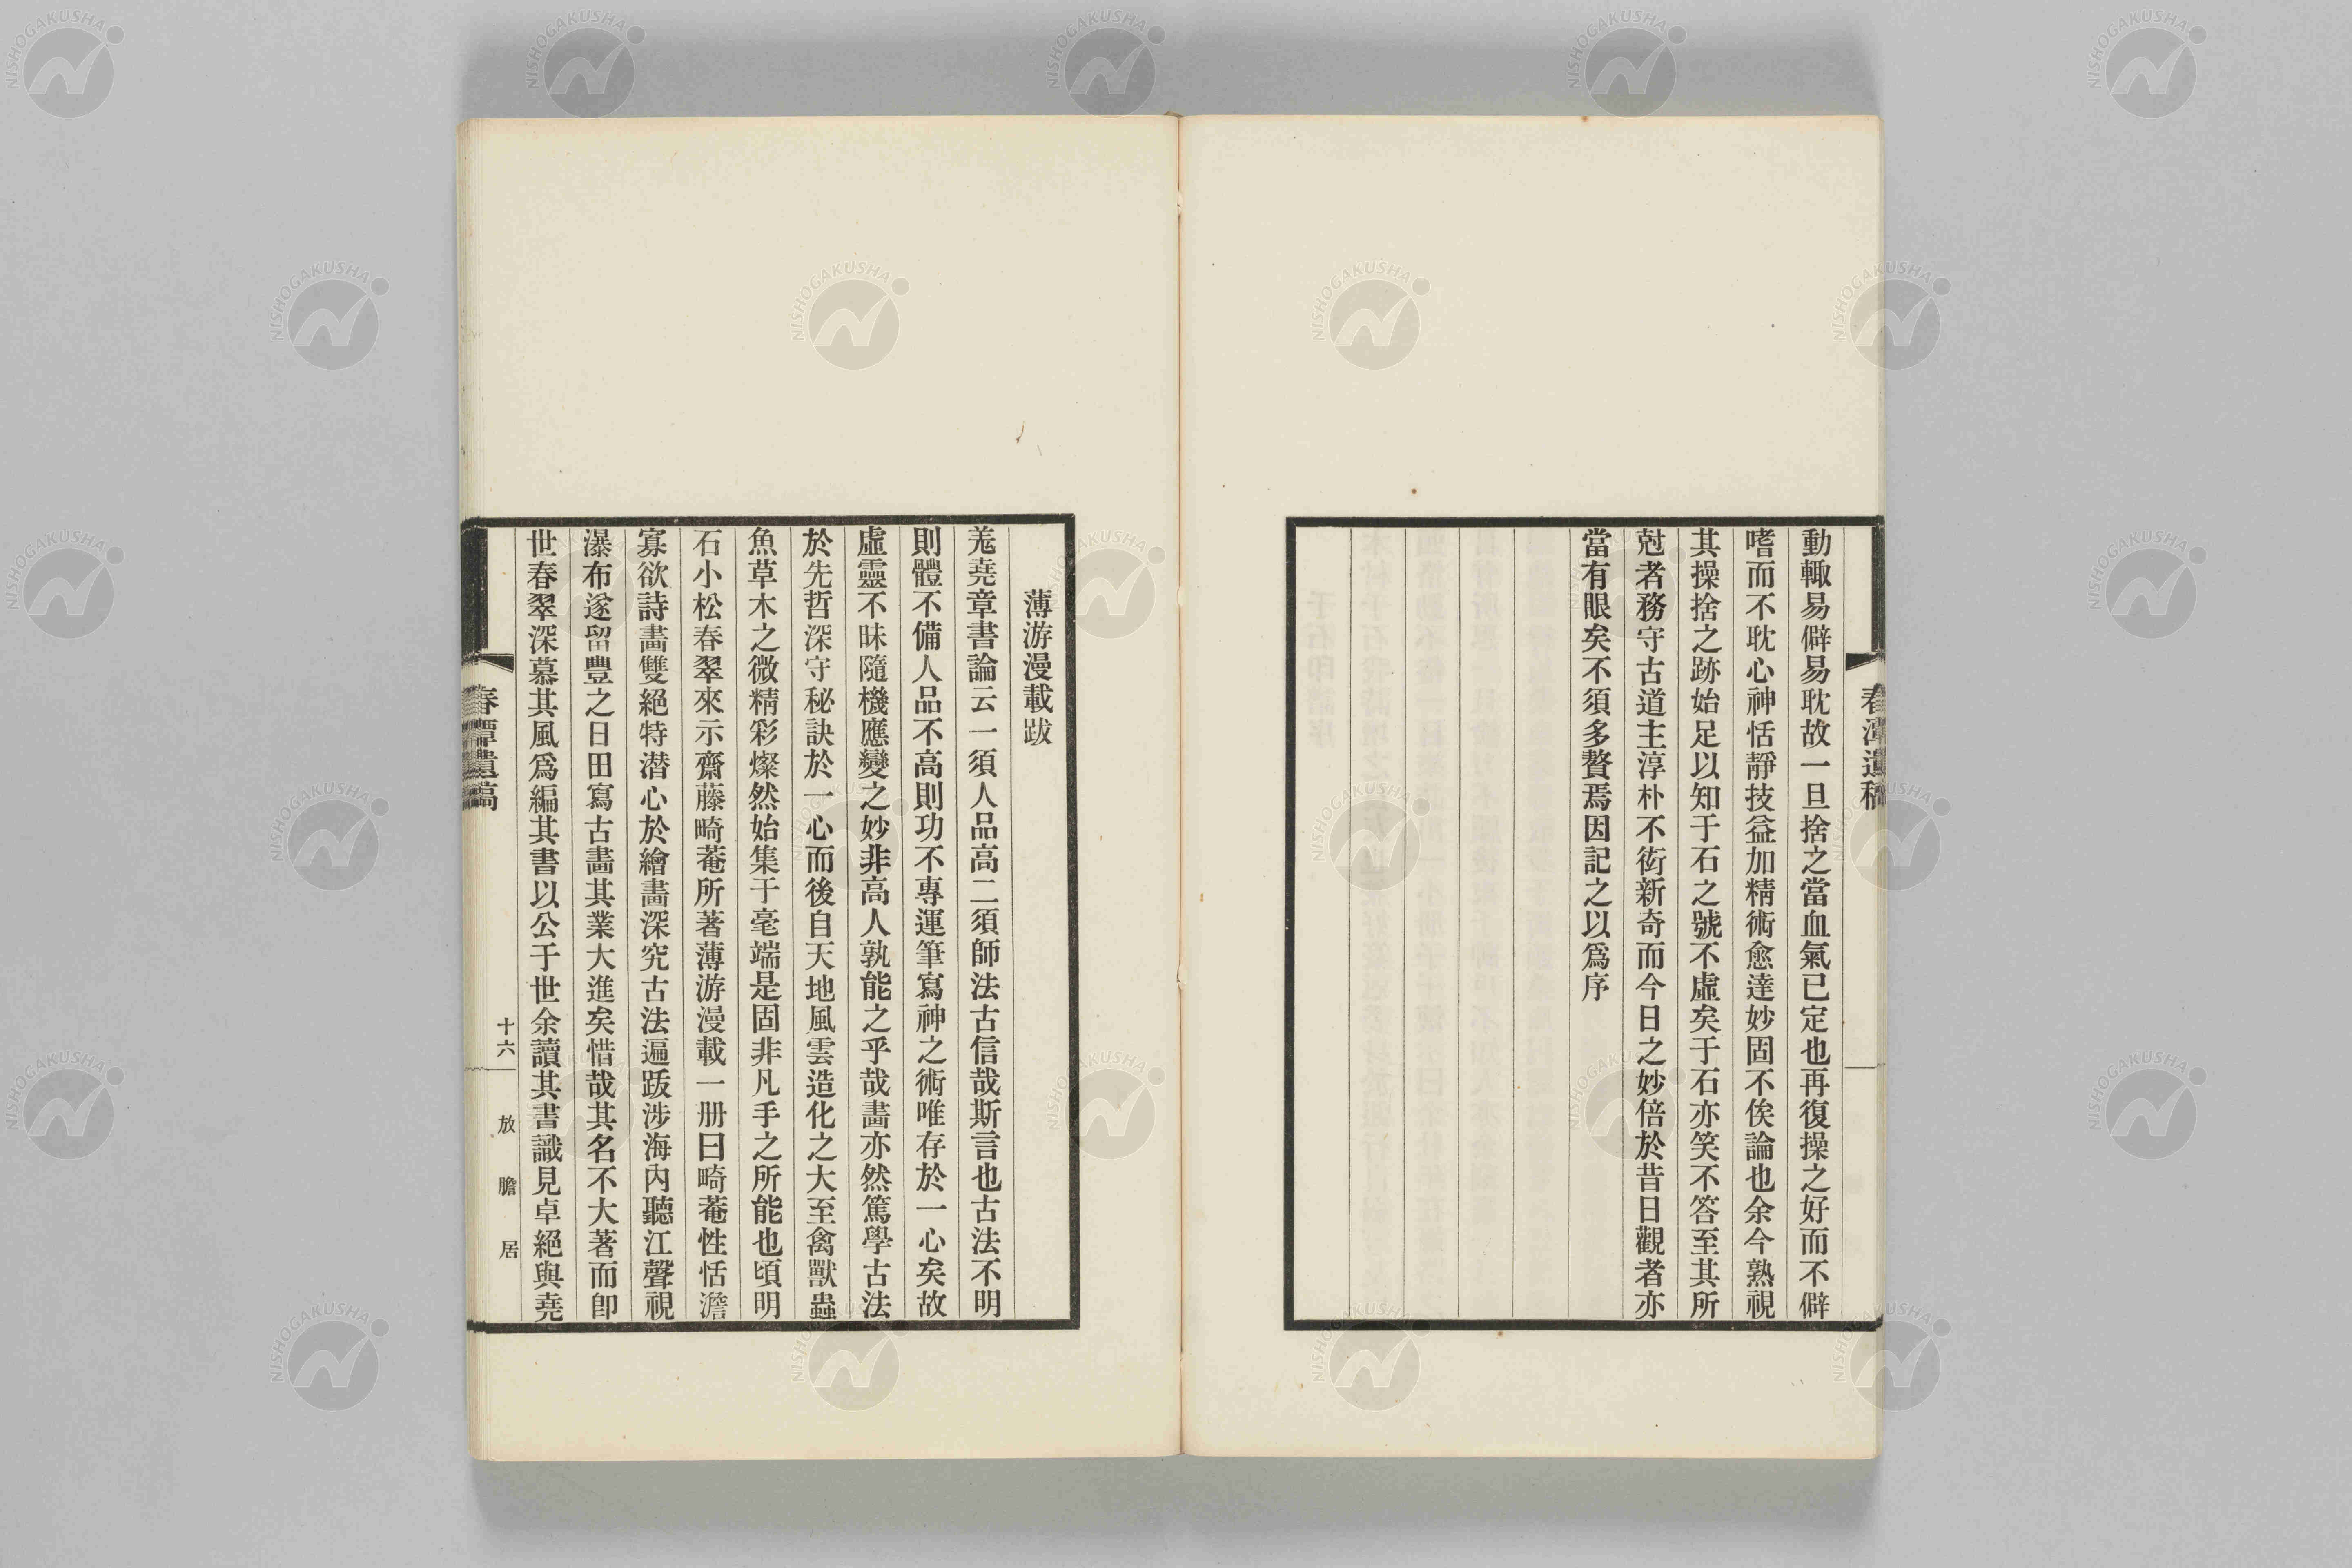 春潭遺稿
動輙易僻易耽故一旦捨之當血氣已定也再復操之好而不僻
嗜而不耽心神恬靜技益加精術愈達妙固不俟論也余今熟視
其操捨之跡始足以知于石之號不虛矣于石亦笑不答至其所
尅者務守古道主淳朴不衒新奇而今日之妙倍於昔日觀者亦
當有眼矣不須多贅焉因記之以爲序
薄游漫載跋
羗堯章書論云一須人品高二須師法古信哉斯言也古法不明
則體不備人品不高則功不專運筆寫神之術唯存於一心矣故
虛靈不昧隨機應變之妙非高人孰能之乎哉畵亦然篤學古法
於先哲深守秘訣於一心而後自天地風雲造化之大至禽獸蟲
魚草木之微精彩燦然始集于毫端是固非凡手之所能也頃明
石小松春翠來示齋藤畸菴所著薄游漫載一册曰畸菴性恬澹
寡欲詩畵雙絕特潜心於繪畵深究古法遍跋涉海內聽江聲視
瀑布遂留豐之日田寫古畵其業大進矣惜哉其名不大著而卽
世春翠深慕其風爲編其書以公于世余讀其書識見卓絕與堯
春潭遺稿
十六
放膽居
NISHOGAKUSHA